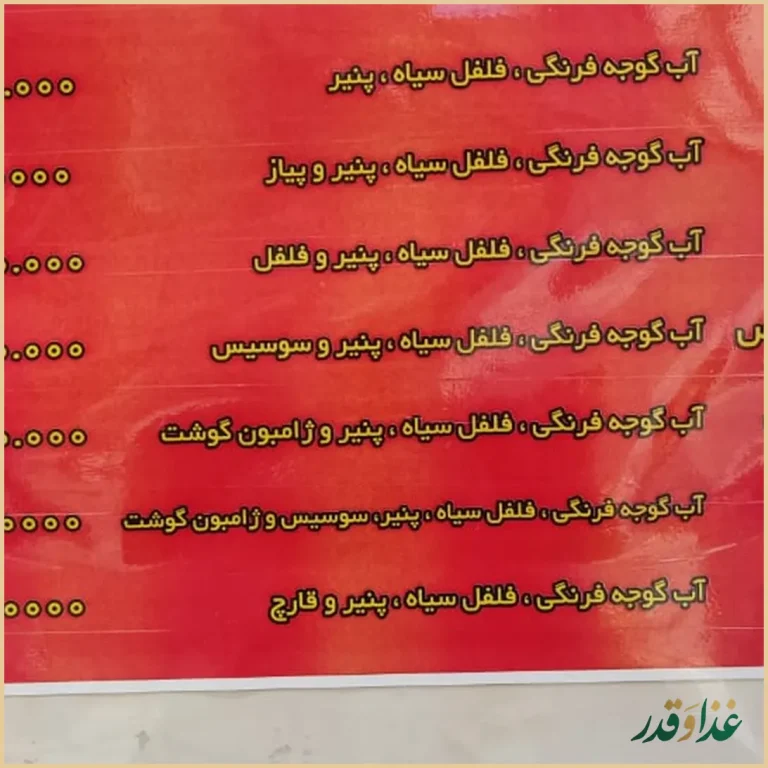 آب گوجه فرنگی ، فلفل سیاه ، پنیر .۰۰۰
آب گوجه فرنگی ، فلفل سیاه ، پنیر و پیاز ۰۰۰
آب گوجه فرنگی ، فلفل سیاه ، پنیر و فلفل ۰.۰۰۰
آب گوجه فرنگی ، فلفل سیاه ، پنیر و سوسیس ۰.۰۰۰
آب گوجه فرنگی ، فلفل سیاه ، پنیر و ژامبون گوشت ۰.۰۰۰
آب گوجه فرنگی ، فلفل سیاه ، پنیر، سوسیس و ژامبون گوشت ۰۰۰۰
آب گوجه فرنگی ، فلفل سیاه ، پنیر و قارچ ۰۰۰۰
غذا و قدر